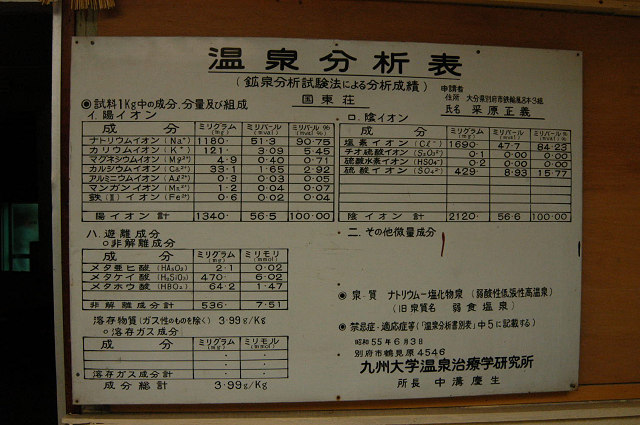 温泉分析表
(鉱泉分析試験法による分析成績)
国東荘
申請者
住所 大分県別府市鉄輪風呂本3組
氏名 采原正義
◉試料1Kg中の成分、分量及び組成
イ. 陽イオン
成分 ミリグラム(mg) ミリバール(mval) ミリバル%(mval%)
ナトリウムイオン(Na⁺) 1180. 51.3 90.75
カリウムイオン(K⁺) 121. 3.09 5.45
マグネシウムイオン(Mg²⁺) 4.9 0.40 0.71
カルシウムイオン(Ca²⁺) 33.1 1.65 2.92
アルミニウムイオン(Al³⁺) 0.3 0.03 0.05
マンガンイオン(Mn²⁺) 1.2 0.04 0.07
鉄(Ⅱ)イオン(Fe²⁺) 0.6 0.02 0.04
陽イオン計 1340. 56.5 100.00
ロ. 陰イオン
成分 ミリグラム(mg) ミリバール(mval) ミリバール%(mval%)
塩素イオン(Cl⁻) 1690. 47.7 84.23
チオ硫酸イオン(S₂O₃²⁻) 0.1 0.00 0.00
硫酸水素イオン(HSO₄⁻) 0.2 0.00 0.00
硫酸イオン(SO₄²⁻) 429. 8.93 15.77
陰イオン計 2120. 56.6 100.00
ハ. 遊離成分
○非解離成分
成分 ミリグラム(mg) ミリモリ(mmol)
メタ亜ヒ酸(HAsO₂) 2.1 0.02
メタケイ酸(H₂SiO₃) 470. 6.02
メタホウ酸(HBO₂) 64.2 1.47
非解離成分計 536. 7.51
溶存物質(ガス性のものを除く) 3.99g/Kg
○溶存ガス成分
成分 ミリグラム(mg) ミリモリ(mmol)
溶存ガス成分計
成分総計 3.99g/Kg
ニ. その他微量成分
◉泉質 ナトリウム―塩化物泉(弱酸性低張性高温泉)
(旧泉質名 弱食塩泉)
◉禁忌症・適応症等(「温泉分析書別表」中5に記載する)
昭和55年6月3日
別府市鶴見原4546
九州大学温泉治療学研究所
所長 中溝慶生